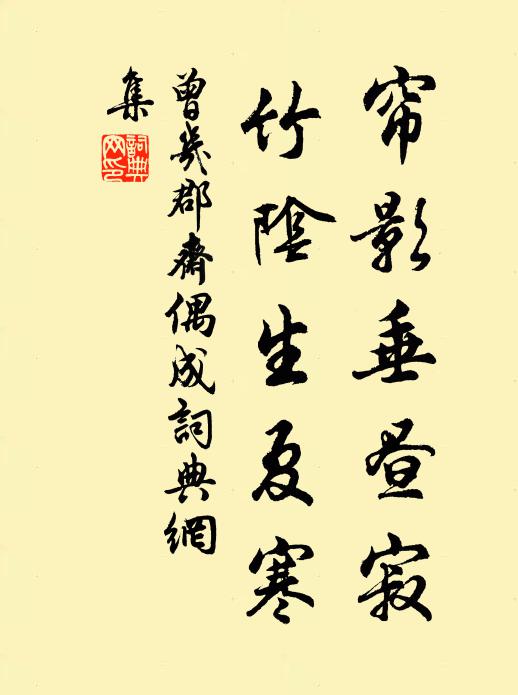 帘影垂昼寂
竹陰生夏寒
曾幾郡齋偶成詞典網
集
詞典
网印